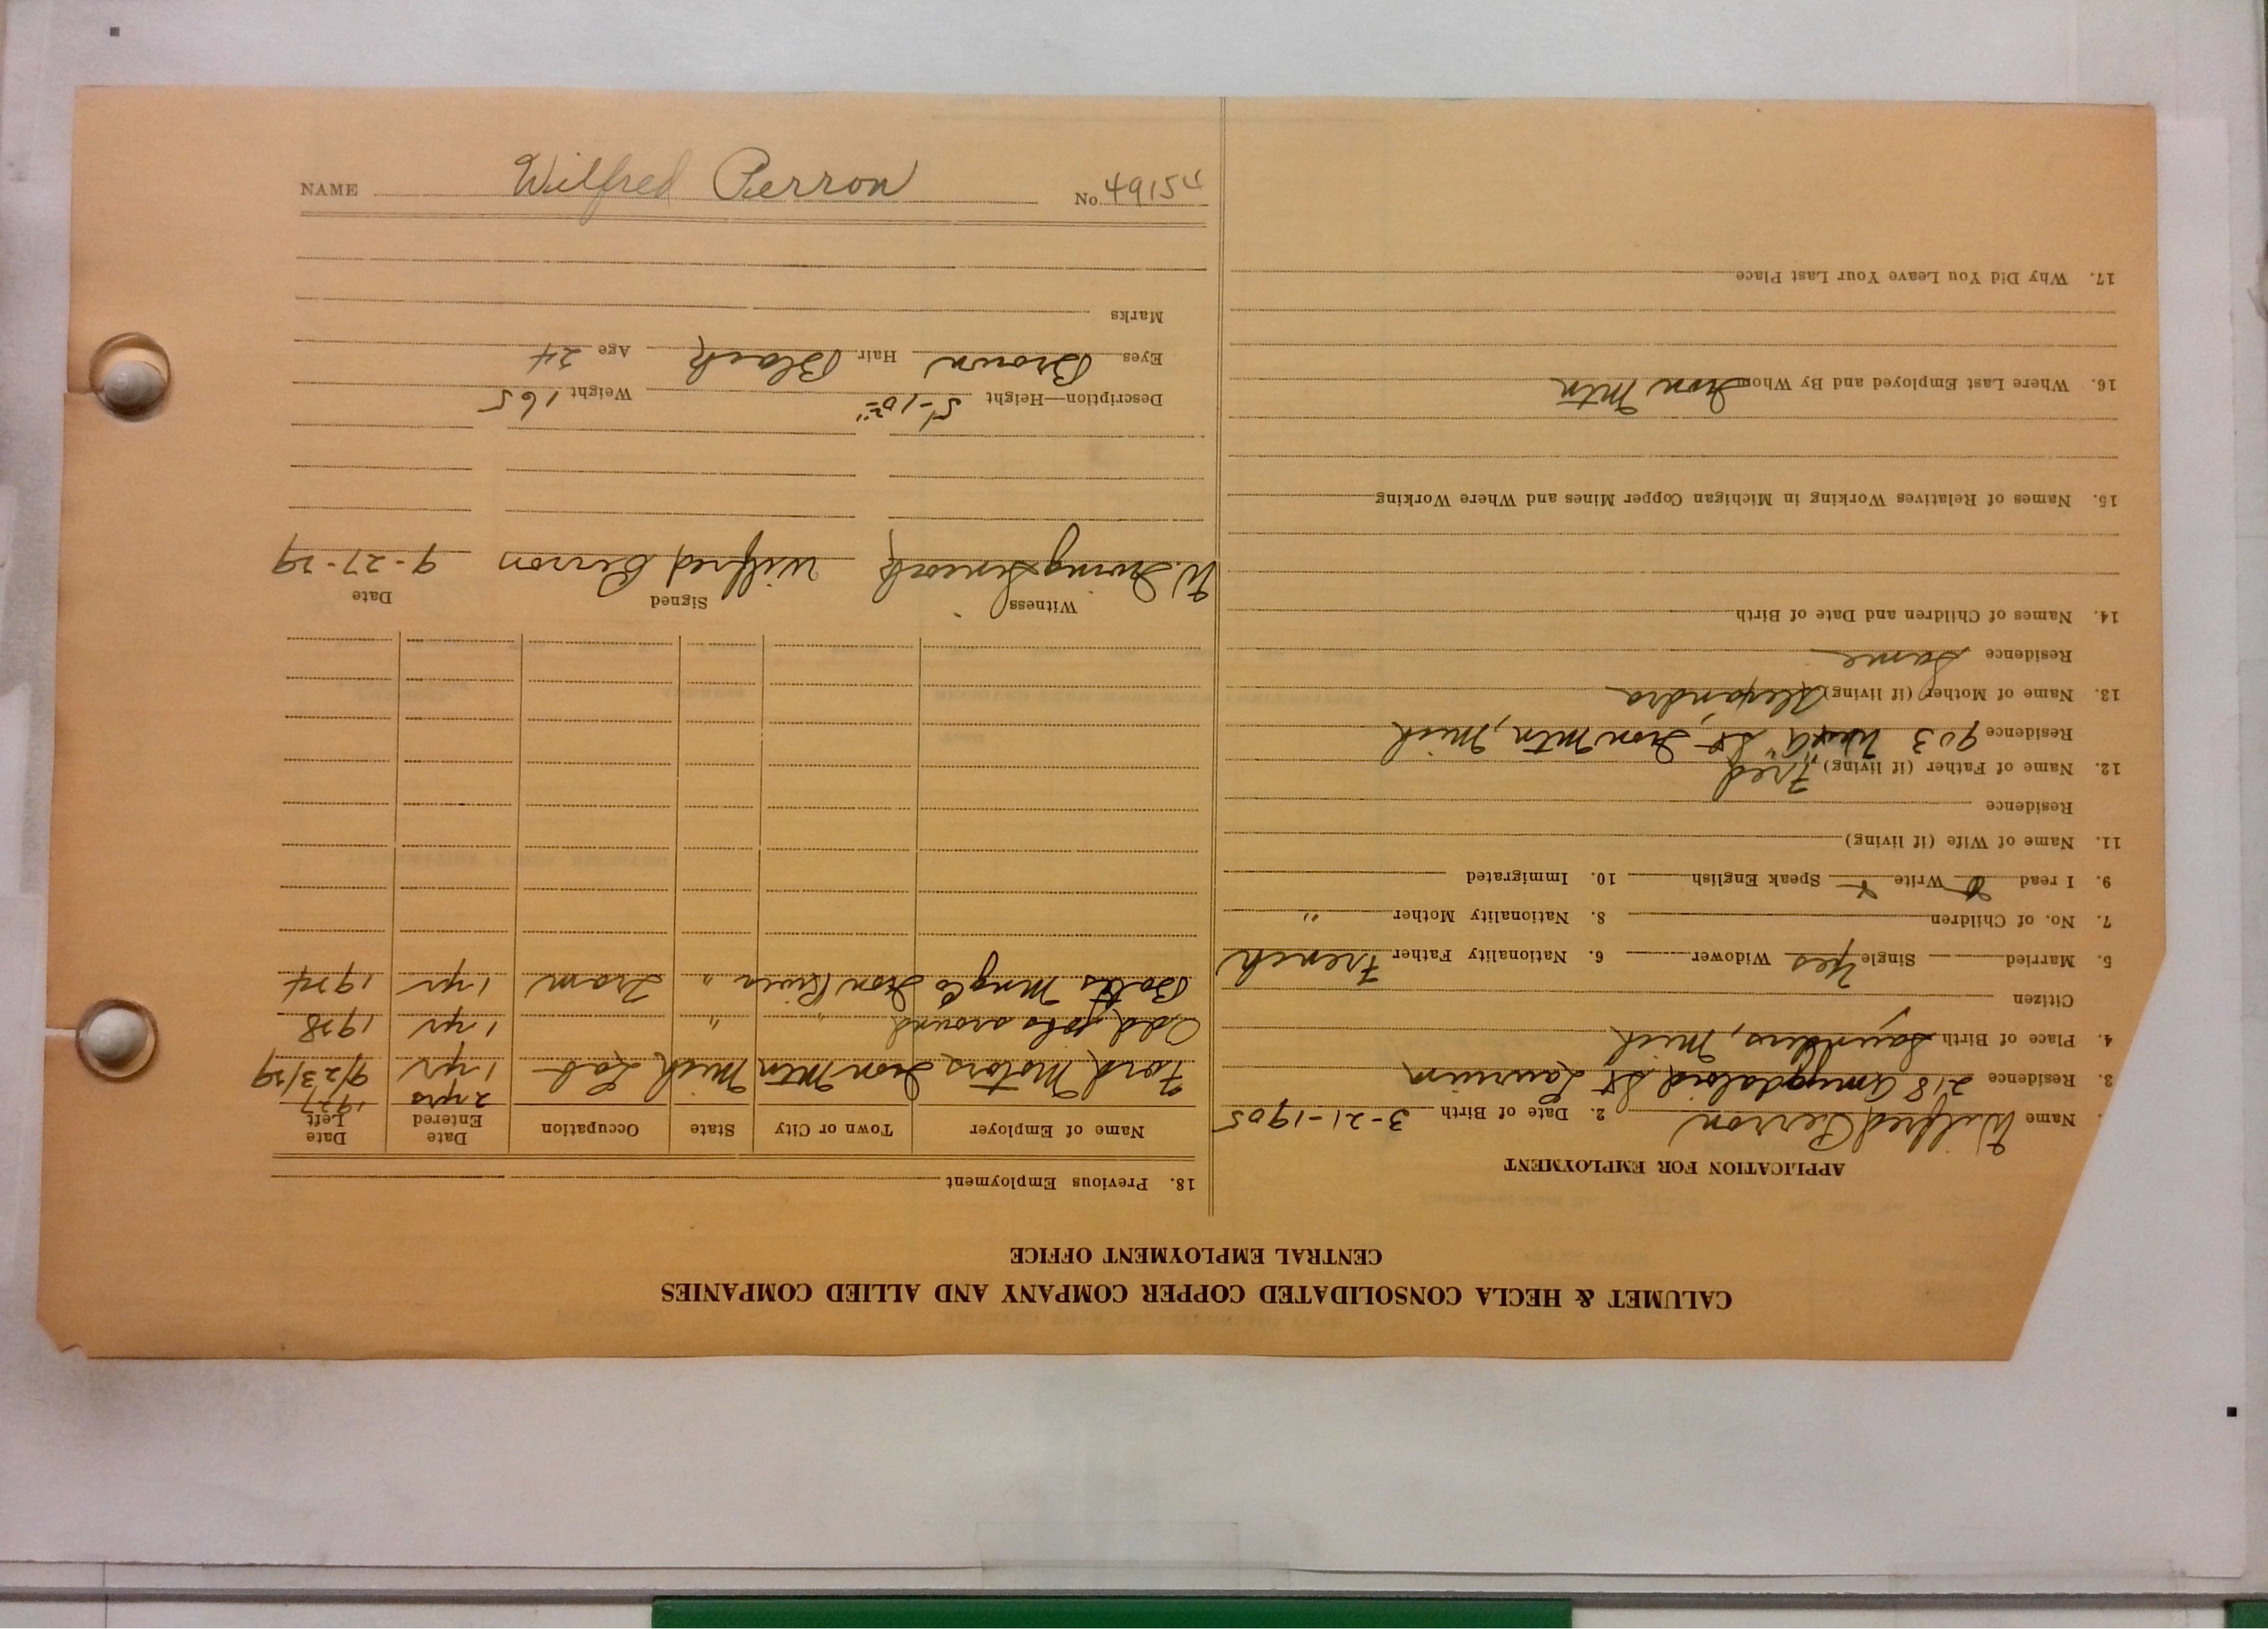 CALUMET & HECLA CONSOLIDATED COPPER COMPANY AND ALLIED COMPANIES
CENTRAL EMPLOYMENT OFFICE
APPLICATION FOR EMPLOYMENT
Name Wilfred Perron 2. Date of Birth 3-21-1905
3. Residence 218 Amygdaloid St Laurium
4. Place of Birth Saunders, Mich
Citizen
5. Married Single Yes Widower 6. Nationality Father French
7. No. of Children 8. Nationality Mother "
9. I read Write Speak English 10. Immigrated
11. Name of Wife (if living)
Residence
12. Name of Father (if living) Fred
Residence 903 West "A" St Iron Mtn, Mich
13. Name of Mother (if living) Alexandra
Residence Same
14. Names of Children and Date of Birth
15. Names of Relatives Working in Michigan Copper Mines and Where Working
16. Where Last Employed and By Whom Iron Mtn
17. Why Did You Leave Your Last Place
18. Previous Employment
Name of Employer Town or City State Occupation Date Entered Date Left
2 yrs 1927
Ford Motors Iron Mtn Mich Lab 1 yr 9/23/29
Odd jobs around " " 1 yr 1928
Bates Mng Co Iron River " Tram 1 yr 1924
Witness Signed Date
W. Irving Wilfred Perron 9-27-29
Description—Height 5'-10" Weight 165
Eyes Brown Hair Black Age 24
Marks
NAME Wilfred Perron No. 49154